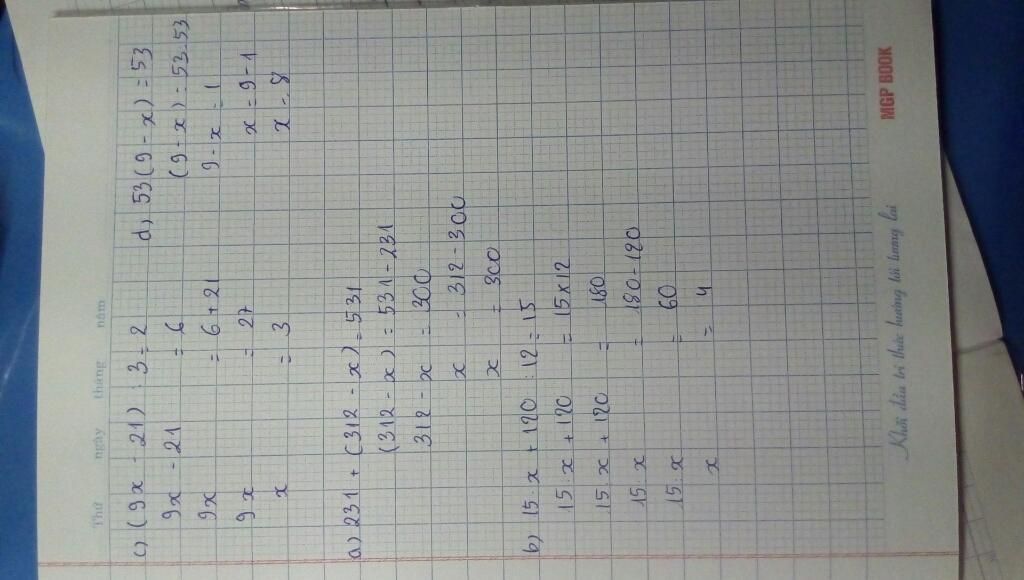 Thứ ngày tháng năm
c) (9x - 21) : 3 = 2
9x - 21 = 6
9x = 6 + 21
9x = 27
x = 3
d) 53(9 - x) = 53
(9 - x) = 53.53
9 - x = 1
x = 9 - 1
x = 8
a) 231 + (312 - x) = 531
(312 - x) = 531 - 231
312 - x = 300
x = 312 - 300
x = 300
b) 15.x + 120 : 12 = 15
15.x + 120 = 15 x 12
15.x + 120 = 180
15.x = 180 - 120
15.x = 60
x = 4
Khơi dẫn tri thức hướng tới tương lai
MGP BOOK